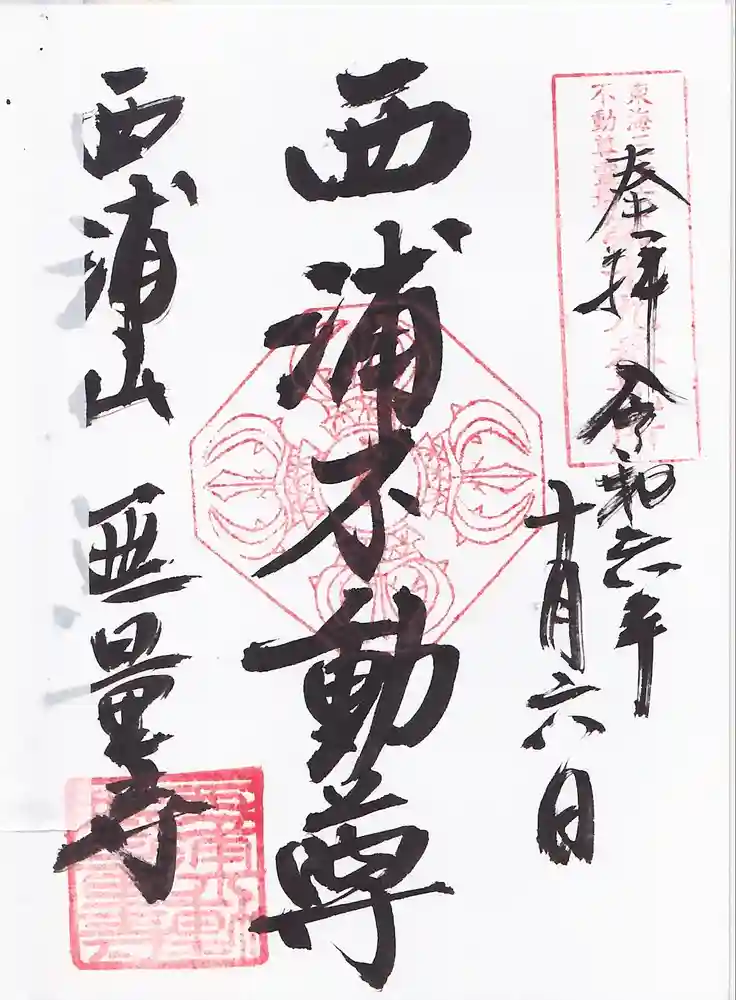 奉拝
令和六年
十月六日
東海三
不動尊霊
西浦不動尊
西浦山
無量寺